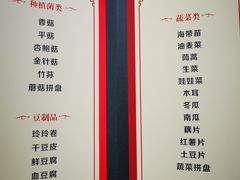 种植菌类
香菇
平菇
杏鲍菇
金针菇
竹荪
蘑菇拼盘
豆制品
玲玲卷
干豆皮
鲜豆腐
血豆腐
蔬菜类
海带苗
油麦菜
茼蒿
生菜
娃娃菜
木耳
冬瓜
南瓜
藕片
红薯片
土豆片
蔬菜拼盘